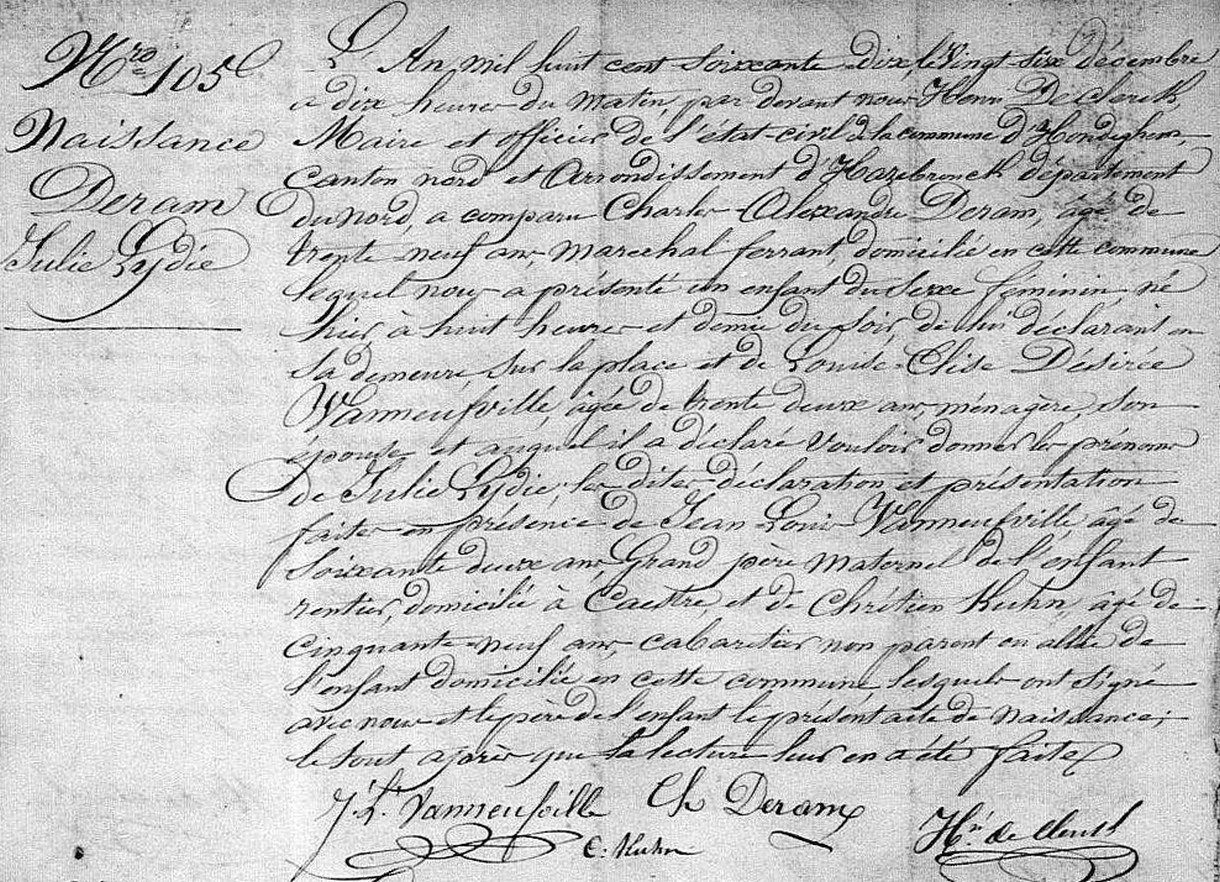 Nro 105
Naissance
Deram
Julie Lydie
L'An mil huit cent soixante-dix, le vingt six décembre
à dix heures du matin, par devant nous Henri De Clerck,
Maire et officier de l'état-civil de la commune d'Hondeghem,
canton nord et Arrondissement d'Hazebrouck département
du nord, a comparu Charles-Alexandre Deram, âgé de
trente neuf ans, marechal ferrant, domicilié en cette commune
lequel nous a présenté un enfant du sexe féminin, né
hier, à huit heures et demie du soir, de lui déclarant en
sa demeure, sur la place et de Louise-Elise Désirée
Vanneufville, âgée de trente deux ans, ménagère, son
épouse et auquel il a déclaré vouloir donner les prénoms
de Julie Lydie; les dites déclaration et présentation
faites en présence de Jean-Louis Vanneufville âgé de
soixante deux ans, Grand père maternel de l'enfant
rentier, domicilié à Caestre, et de Chrétien Kuhn, âgé de
cinquante-neuf ans, cabaretier non parent ou allié de
l'enfant domicilié en cette commune, lesquels ont signé
avec nous et le père de l'enfant le présent acte de naissance;
le tout après que la lecture leur en a été faite
J. L. Vanneufville Ch Deram
C. Kuhn Hri de Clerck